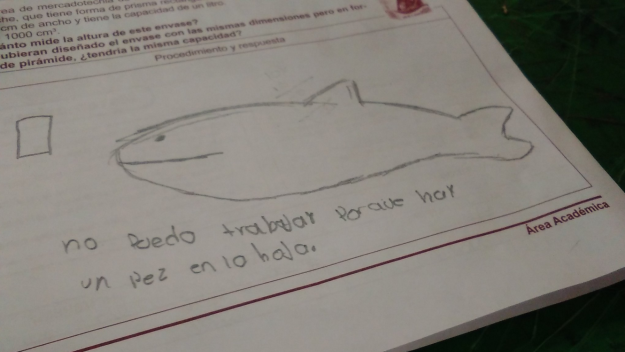 ea de mercadotecnia
he, que tiene forma de prisma
cm de ancho y tiene la capacidad de un litro
1000 cm³.
ánto mide la altura de este envase?
ubieran diseñado el envase con las mismas dimensiones pero en for-
de pirámide, ¿tendría la misma capacidad?
Procedimiento y respuesta
no Puedo trabajar Porque hay
un pez en lo hoja.
Área Académica